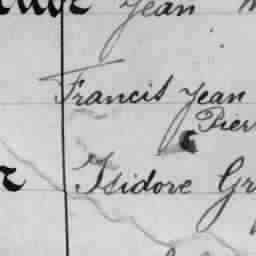 Jean
Francis Jean
Pier
Isidore Gr